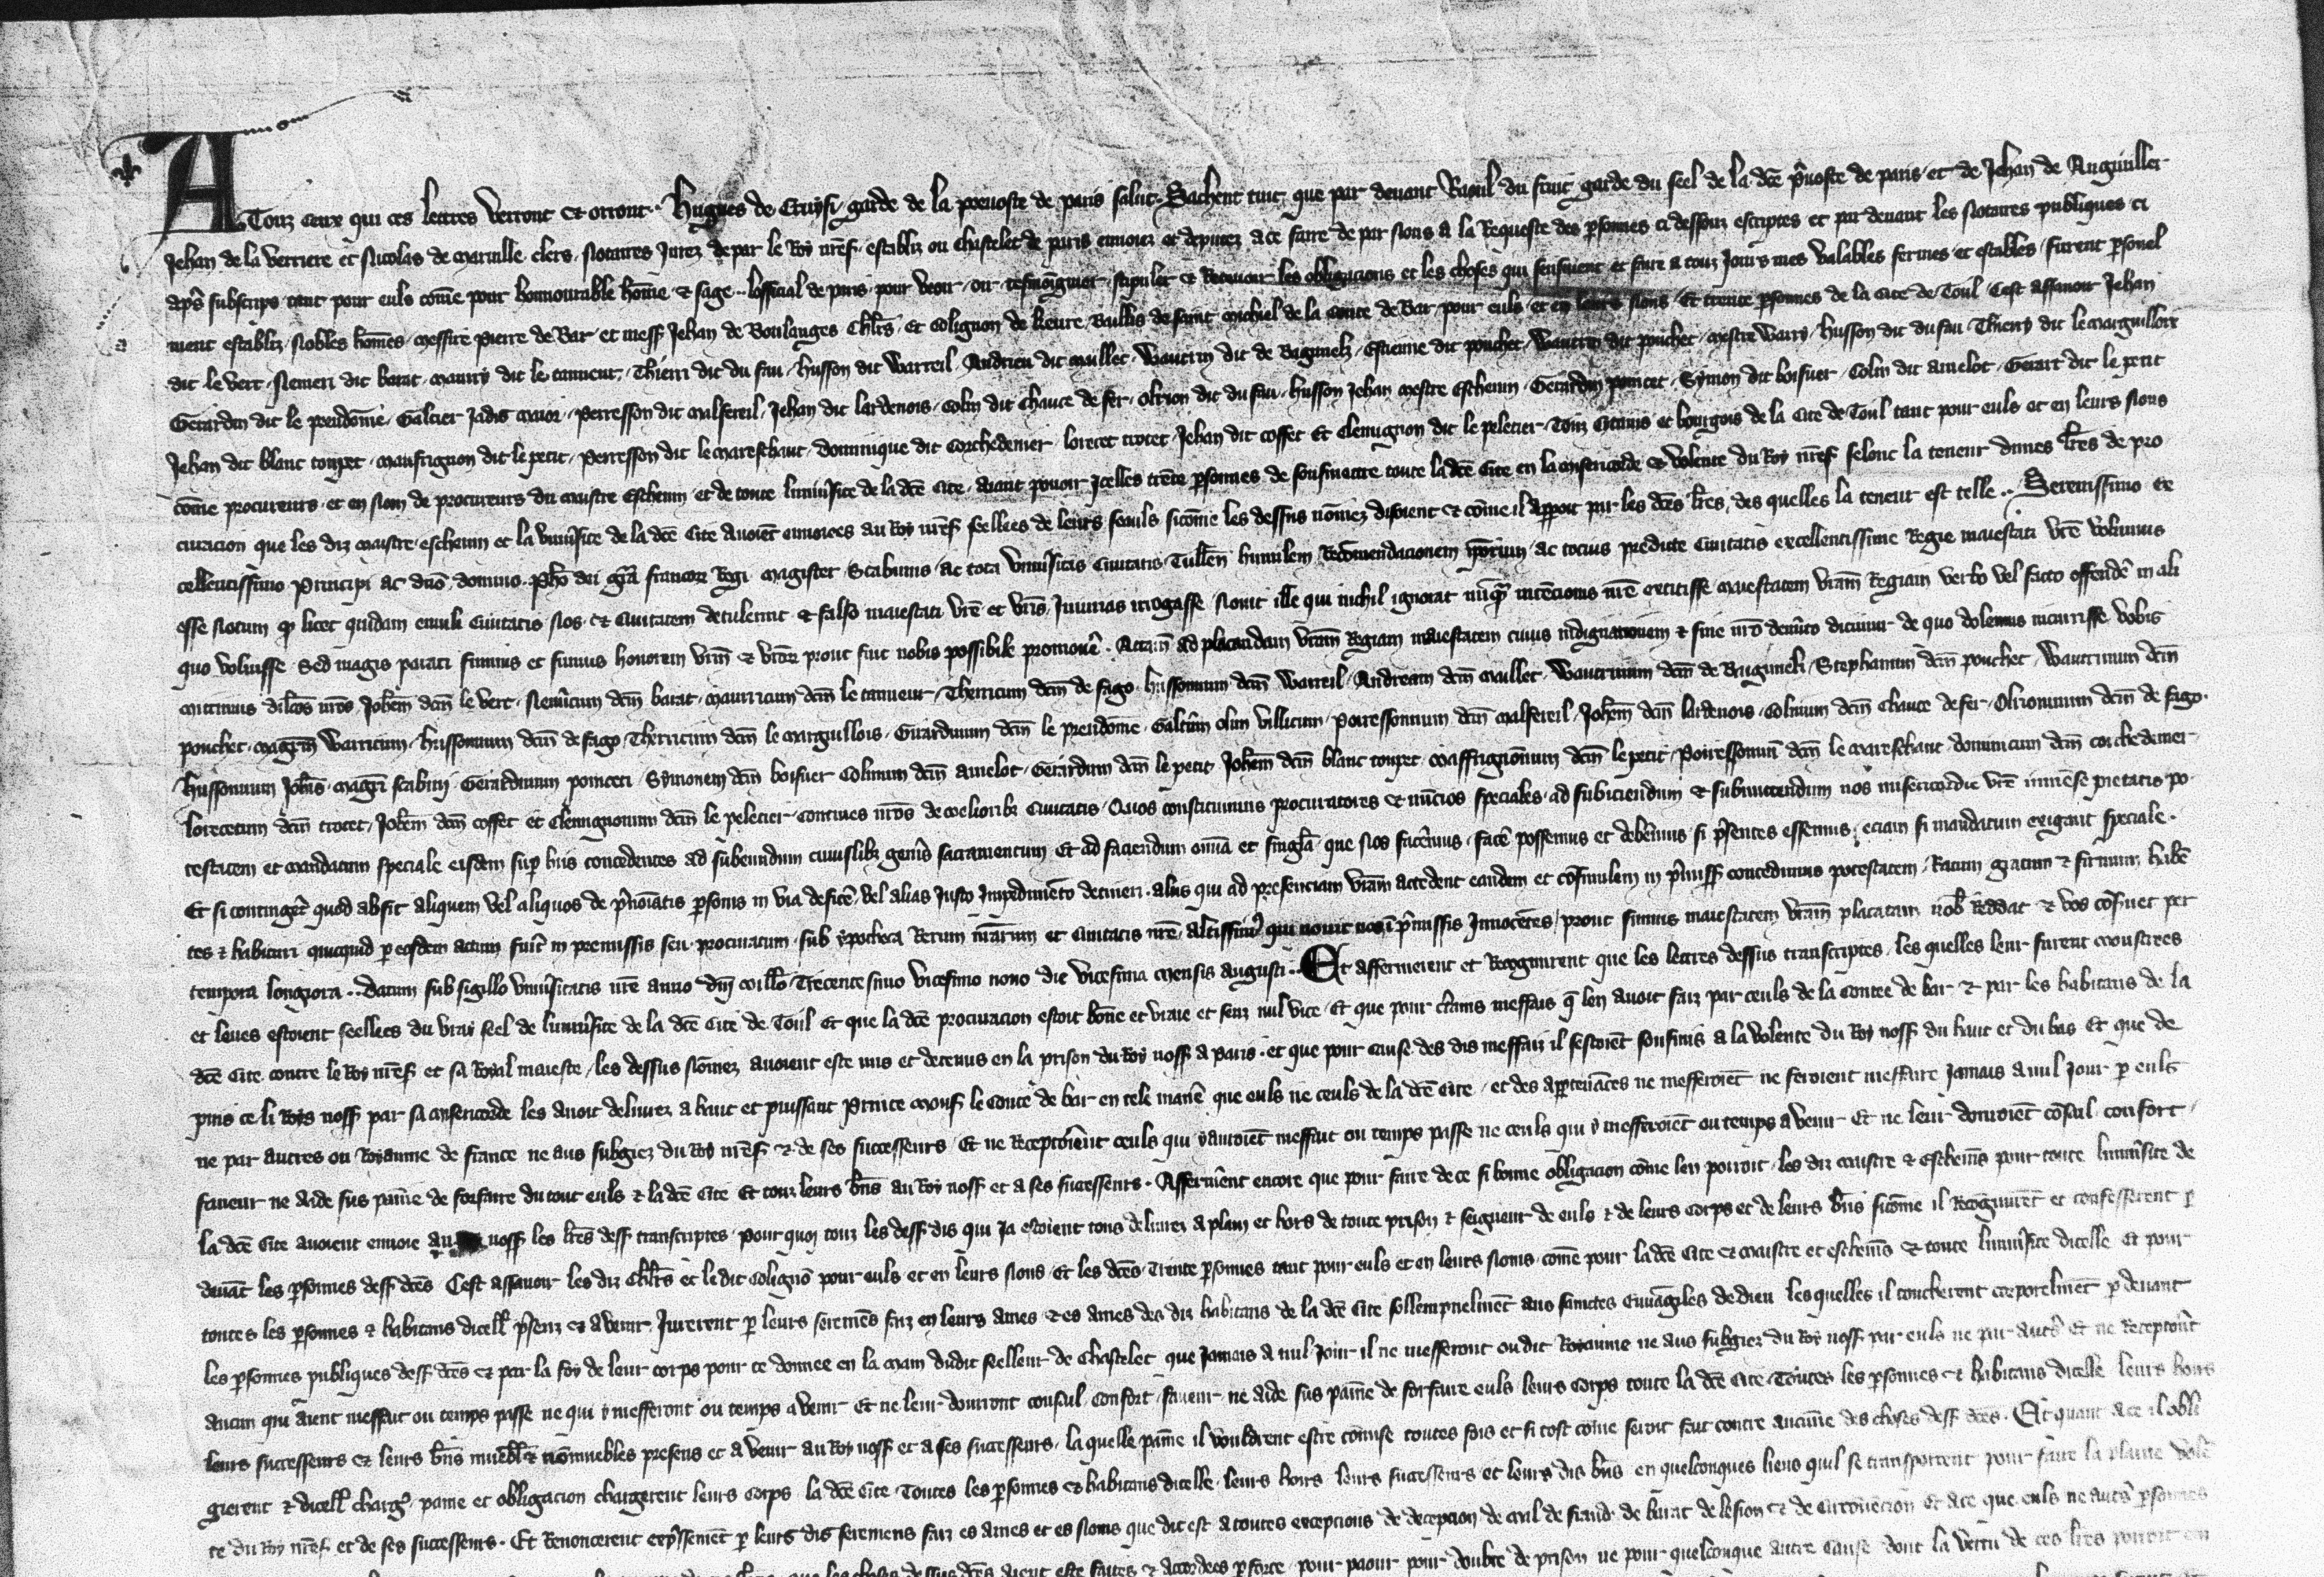 A Touz ceux qui ces lettres verront et orront. Hugues de Cruysi garde de la prevoste de paris salut. Sachent tuit que par devant Raoul du fruit garde du seel de la dce pvoste de paris. et de Jehan de
Jehan de la verriere et Nicolas de maruille clers Notaires Jurez de par le Roy nres. establiz ou chastelet de paris envoiez et deputez a ce faire de par nous a la Requeste des psonnes ci dessouz escriptes et par devant les Notaires publiques ci
aps subscrips tant pour euls come pour honnourable home et sage lofficial de paris pour veoir oir tesmoigner stipuler et Recevoir les obligacions et les choses qui sensuient et faire a touz Jours mes valables fermes et estables furent psonel
ment establiz Nobles homes messire pierre de Bar et mess Jehan de Boulanges chlrs et Colignon de Baillis de saint michiel de la conte de Bar pour euls et en leurs noms Et trente psonnes de la Cite de Toul Cest assavoir Jehan
dit le vert Nemeri dit barat maury dit le tanneur Thierri dit du fau husson dit Warreil Andrieu dit maillet Wautrin dit de Estienne dit pouchet Wautrin dit pouchet mestre Warry husson dit du fau Thierry dit le marguillois
Gerardin dit le preudome Galtier Jadis maior perresson dit malsereil Jehan dit lardenois Colin dit chauce de fer Olrion dit du fau husson Jehan mestre Eschevin Gerardin poincet Symon dit boisuer Colin dit amelot Gerart dit le petit
Jehan dit blanc toupet maufrignon dit le petit perresson dit le mareschaut dominique dit Corchedenier loretet trotet Jehan dit cosset Et Clemignon dit le peletier Touz Citains et bourgois de la Cite de Toul tant pour euls et en leurs noms
come procureurs et en nom de procureurs du maistre Eschevin et de toute luniusite de la dce Cite aiant povoir Icelles trete psonnes de sousmettre toute la dce Cite en la misericorde et volente du Roy nres selonc la teneur dunes lres de pro
curacion que les diz maistre eschevin et la uniusite de la dce Cite avoiet envoiees au Roy nres seellees de leurs seauls sicome les dessus nomez disoient et come il apparoit par les dces lres des quelles la teneur est telle Serenissimo et
cellentissimo principi ac dno domino pho dei gra francor Regi magister Scabinus ac tota uniusitas Civitatis Tullen humilem Recomendacionem ac tocius predicte Civitatis excellentissime Regie maiestati vre volumus
esse notum q licet quidam emuli Civitatis nos et Civitatem detulerint et falso maiestati vre et vris Iniurias irrogasse novit ille qui nichil ignorat nuq intencionis nre extitisse maiestatem vram Regiam verbo vel facto offende in ali
quo voluisse Sed magis parati fuimus et sumus honorem vrm et vror prout fuit nobis possibile promove. Attam ad placandam vram Regiam maiestatem cuius indignationem et sine nro demito dicimur de quo dolemus incurrisse vobis
mittimus dilcos nros Johem dcm le vert Nemicum dcm barat mauricum dcm le tanneur Therricum dcm de fago hussonum dcm Warreil Andream dcm maillet Wautrinum dcm de Stephanum dcm pouchet Wautrinum dcm
pouchet magrm Warricum hussonum dcm de fago Therricum dcm le marguillois Girardinum dcm le preudome Galtum olim villicum poiressonum dcm malsereil Johem dcm lardenois Colinum dcm chauce de fer Olrionum dcm de fago
hussonum Johis magri scabini Gerardinum poinceti Symonem dcm boisuer Colinum dcm amelot Gerardum dcm le petit Johem dcm blanc toupet maffrignonum dcm le petit poiressonum dcm le mareschaut dominicum dcm corchedenier
loretetum dcm trotet Johem dcm cosset et Clemignonum dcm le peletier Concives nros de melioribz Civitatis Quos constituimus procuratores et nucios speciales ad subiciendum et submittendum nos misericordie vre immese pietatis po
testatem et mandatum speciale eisdem sup hiis concedentes ad subeundum cuiuslibz genis sacramentum Et ad faciendum omia et singla que nos facemus face possemus et debemus si psentes essemus eciam si mandatum exigant speciale.
Et si continget quod absit aliquem vel aliquos de pnoiatis psonis in via defice vel alias Justo Impedimeto detineri aliis qui ad presenciam vram accedent eandem et cosimilem in pmiss concedimus potestatem Ratum gratum et firmum haben
tes et habituri quicquid p eosdem actum fuit in premissis seu procuratum sub ypotheca Rerum nrarum et Civitatis nre altissim qui novit nos i pmissis Innocetes prout sumus maiestatem vram placatam nob Reddat et vos cosvet per
tempora longiora Datum sub sigillo uniusitatis nre anno dni millo Trecentesimo vicesimo nono die vicesima mensis augusti Et affermerent et Recognurent que les lettres dessus transcriptes les quelles leur furent moustrees
et leues estoient seellees du vray seel de luniusite de la dce Cite de Toul Et que la dce procuracion estoit bone et vraie et senz nul vice Et que pour ctains meffais q len avoit faiz par ceuls de la Contee de bar et par les habitans de la
dce Cite contre le Roy nres et sa Royal maieste les dessus nomez avoient este mis et detenus en la prison du Roy noss a paris et que pour cause des dis meffaiz il sestoiet sousmis a la volente du Roy noss du haut et du bas Et que de
puis ce li Roys noss par sa misericorde les avoit delivrez a haut et puissant Prince mons le Conte de bar en tele manie que euls ne ceuls de la dce Cite et des aptenaces ne mefferoiet ne feroient meffaire Jamais a nul Jour p euls
ne par autres ou Royaume de france ne aus subgiez du Roy nres et de ses successeurs Et ne Receptoient ceuls qui y auroiet meffait ou temps passe ne ceuls qui y mefferoiet ou temps a venir Et ne leur donroiet coseil confort
faveur ne aide sus paine de forfaire du tout euls et la dce Cite Et touz leurs bns au Roy noss et a ses successeurs. Affermet encore que pour faire de ce si bonne obligacion come len porroit les diz maistre et eschevis pour toute luniusite de
la dce Cite avoient envoie au noss les lres dess transcriptes pour quoy touz les dess dis qui Ja estoient tous delivrez a plain et hors de toute prison et seigneur de euls et de leurs corps et de leurs bns sicome il Recognuret et confesserent p
devat les psonnes dess dces Cest assavoir les diz chlrs et le dit Colignon pour euls et en leurs noms Et les dces Trente psonnes tant pour euls et en leurs noms come pour la dce Cite et maistre et eschevis et toute luniusite dicelle Et pour
toutes les psonnes et habitans dicell psenz et a venir Jurerent p leurs seremes faiz en leurs ames et es ames des diz habitans de la dce Cite sollempnelmet aus sainctes Euvagiles de dieu les quelles il toucherent corporelmet p devant
les psonnes publiques dess dces et par la foy de leur corps pour ce donnee en la main dudit seelleur de chastelet que Jamais a nul Jour il ne mefferont ou dit Royaume ne aus subgiez du Roy noss par euls ne par auts Et ne Receptot
aucun qui aient meffait ou temps passe ne qui y mefferont ou temps a venir Et ne leur donront conseil confort faveur ne aide sus paine de forfaire euls leurs Corps toute la dce Cite Toutes les psonnes et habitans dicelle leurs hoirs
leurs successeurs et leurs bns muebl et nomuebles presens et a venir au Roy noss et a ses successeurs la quelle paine il vouldrent estre comise toutes fois et si tost come seroit fait contre aucune des choses dess dces. Et quant a ce il obli
gierent et dicell charg paine et obligacion chargerent leurs Corps la dce Cite Toutes les psonnes et habitans dicelle leurs hoirs leurs successeurs et leurs dis bns en quelconques liens quil se transportent pour faire la plaine vole
te du Roy nres et de ses successeurs. Et Renoncerent expssemet p leurs dis seremens faiz es ames et es noms que dit est a toutes excepcions de decepcion de mal de fraude de barat de lesion et de circovecion Et a ce que euls ne auts psonnes
que les choses dessus dces aient este faites et accordees p force pour paour pour doubte de prison ne pour quelconque autre cause dont la vertu de ces lres